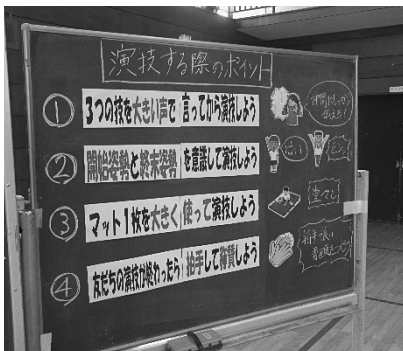 演技する際のポイント
① 3つの技を大きい声で 言ってから演技しよう
② 開始姿勢と終末姿勢 を意識して演技しよう
③ マット1枚を大きく 使って演技しよう
堂々と
④ 友だちの演技が終わったら 拍手して称賛しよう